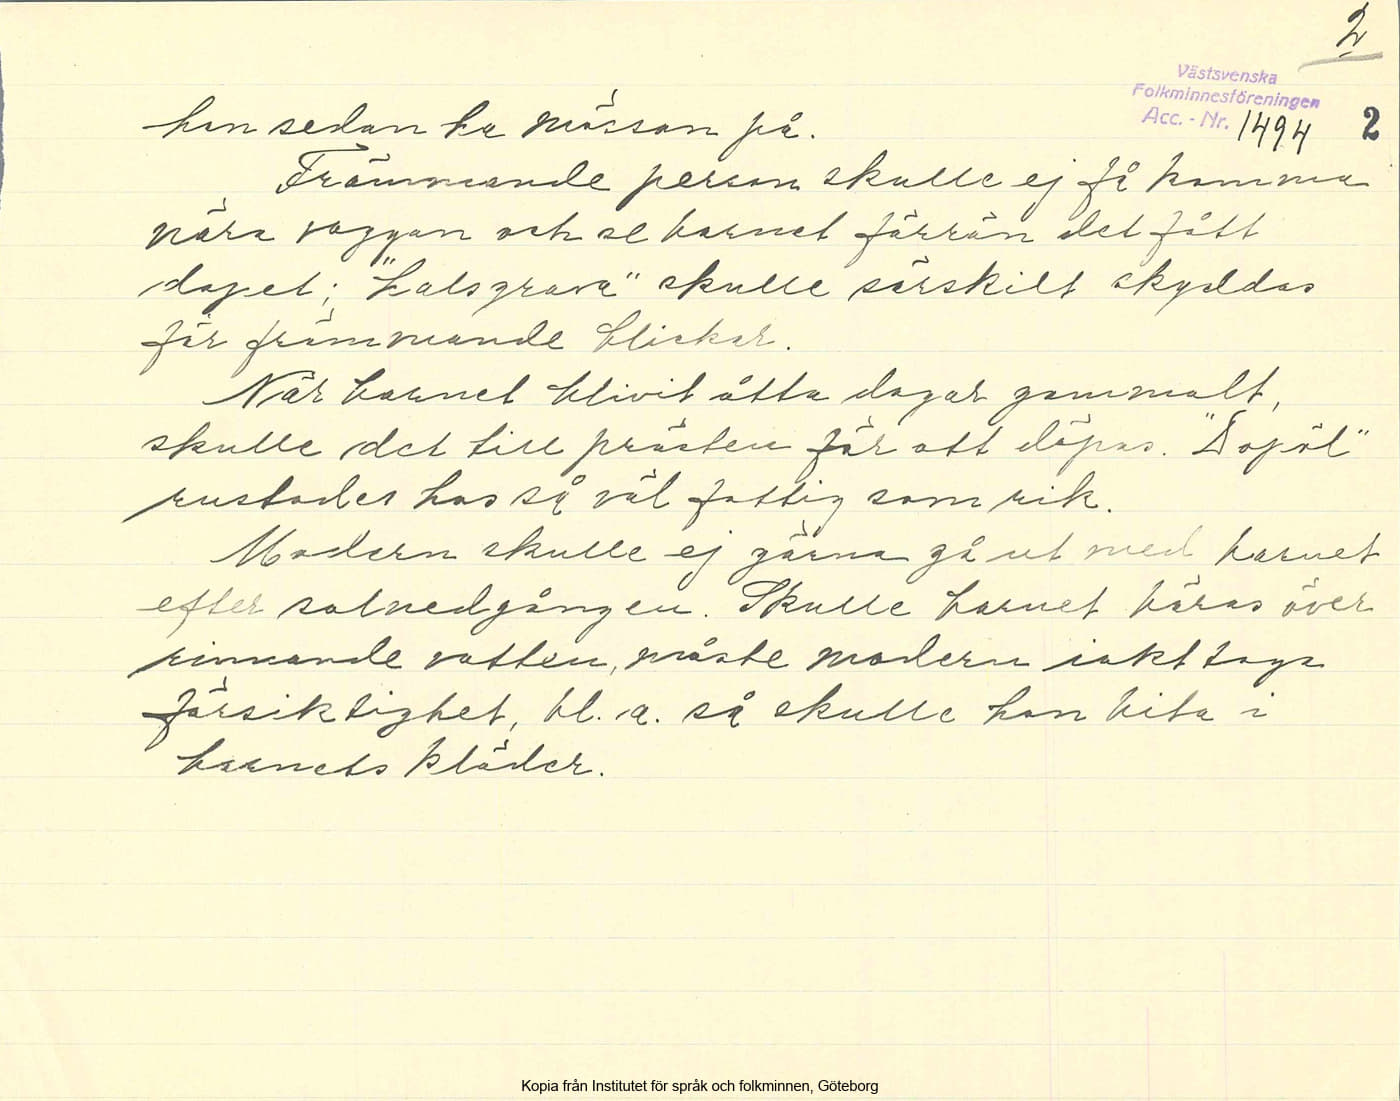 2
Västsvenska
Folkminnesföreningen
Acc. - Nr. 1494 2
hon sedan ha mössan på.
Främmande person skulle ej få komma
nära vaggan och se barnet förrän det fått
dopet; "halsgrava" skulle särskilt skyddas
för främmande blickar.
När barnet blivit åtta dagar gammalt,
skulle det till prästen för att döpas. "Dopöl"
rustades hos så väl fattig som rik.
Modern skulle ej gärna gå ut med barnet
efter solnedgången. Skulle barnet bäras över
rinnande vatten, måste modern iakttaga
försiktighet, bl. a. så skulle hon bita i
barnets kläder.
Kopia från Institutet för språk och folkminnen, Göteborg